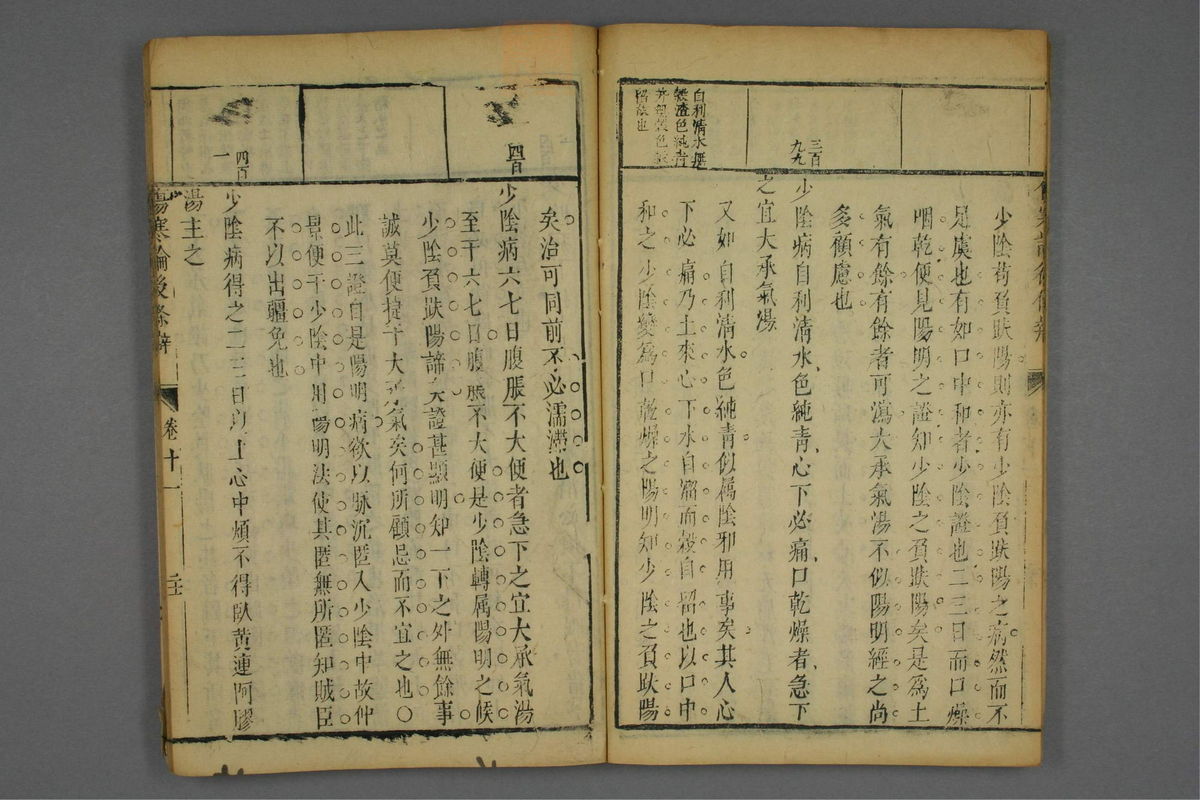 少陰苟負趺陽則亦有少陰負趺陽之病然而不
足虞也有如口中和者少陰證也二三日而口燥
咽乾便見陽明之證知少陰之負趺陽矣是爲土
氣有餘有餘者可瀉大承氣湯不似陽明經之尚
多顧慮也
三百
九九
少陰病自利清水色純青心下必痛口乾燥者急下
之宜大承氣湯
自利清水無
糝渣色純青
又如自利清水色純青似属陰邪用事矣其人心
下必痛乃土來心下水自溜而穀自留也以口中
和之少陰變爲口乾燥之陽明知少陰之負趺陽
矣治可同前不必濡滯也
四百
少陰病六七日腹脹不大便者急下之宜大承氣湯
至于六七日腹脹不大便是少陰轉属陽明之候
少陰負趺陽諦矣證甚顯明知一下之外無餘事
誠莫便捷于大承氣矣何所顧忌而不宜之也〇
此三證自是陽明病欲以脉沉匿入少陰中故仲
景便于少陰中用陽明法使其匿無所匿知賊臣
不以出疆免也
四百
一
少陰病得之二三日以上心中煩不得臥黄連阿膠
湯主之
傷寒論後條辨
卷十一